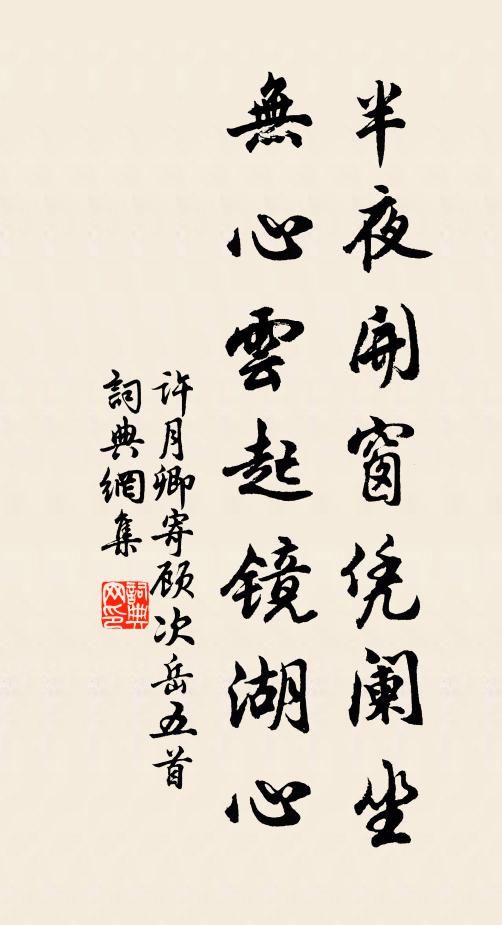 半夜開窗凭阑坐
無心雲起鏡湖心
许月卿寄顾次岳五首
詞典網集
詞典网印